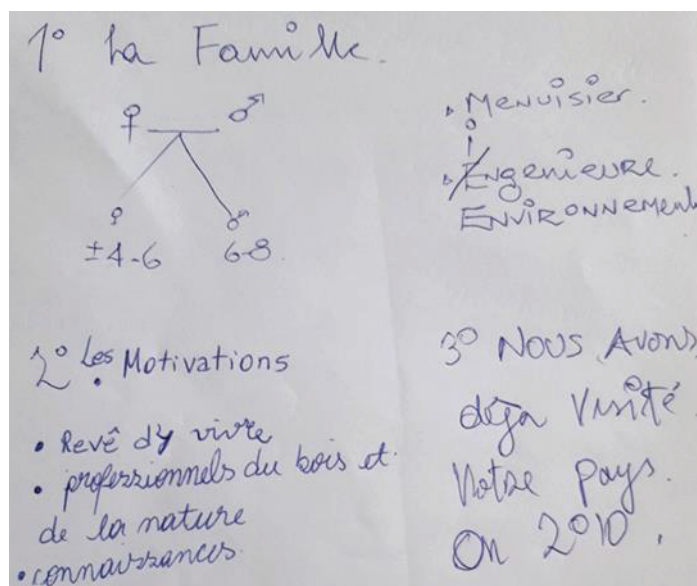 1° La Famille.
♀ — ♂
♀ ♂
±4-6 6-8
• Menuisier.
i
• Engenieure.
ENVIRONNEMENT
2° Les Motivations
• Revê d'y vivre
• professionnels du bois et
de la nature
• connaissances.
3° NOUS AVONS
déja Visité
Votre pays.
On 2010.